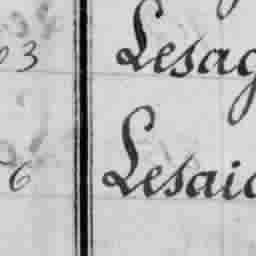 3 Lesag
6 Lesaic